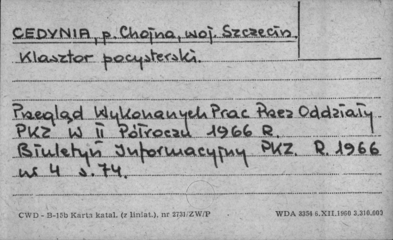 CEDYNIA, p. Chojna, woj. Szczecin.
Klasztor pocysterski.
Przegląd Wykonanych Prac Przez Oddziały
PKZ W II Półroczu 1966 R.
Biuletyn Informacyjny PKZ. R. 1966
nr 4 s. 74.
CWD - B-15b Karta katal. (z liniat.), nr 2731/ZW/P WDA 8354 6.XII.1960 3.310.003